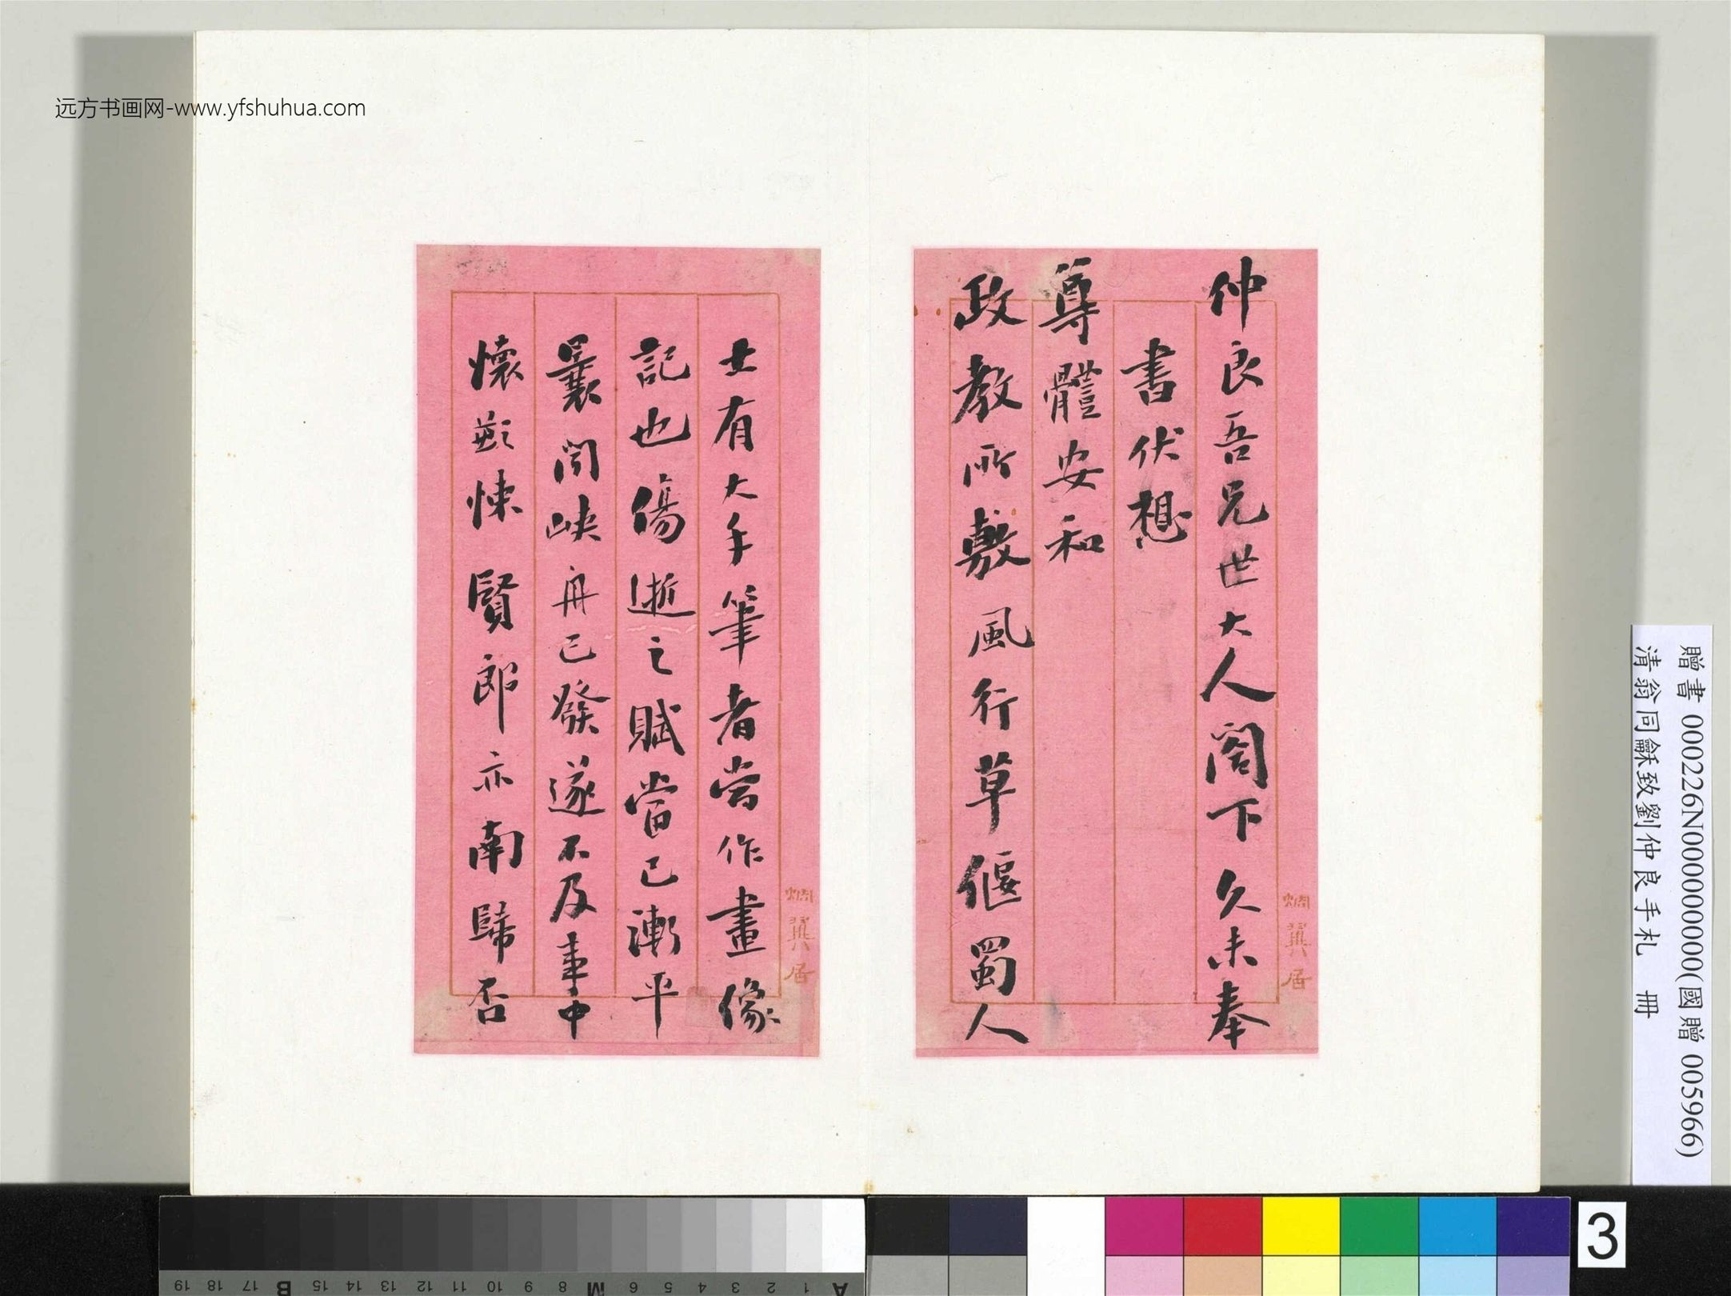 远方书画网-www.yfshuhua.com
仲良吾兄世大人閣下久未奉
書伏想
尊體安和
政教所敷風行草偃蜀人
士有大手筆者當作畫像
記也傷逝之賦當已漸平
曩聞峽舟已發遂不及事中
懷慙悚賢郎亦南歸否
贈書 000226N000000000(國贈 005966)
清翁同龢致劉仲良手札 冊
3
19 18 17 B 15 14 13 12 11 10 9 8 M 6 5 4 3 2 1 A